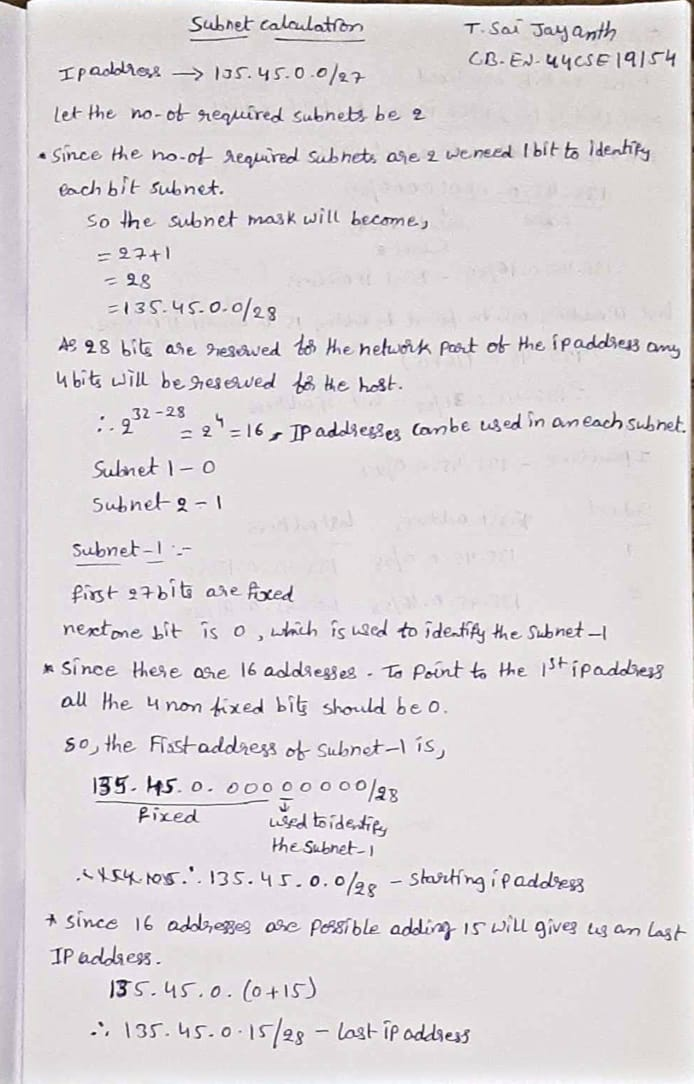 Subnet calculation
T. Sai Jayanth
CB.EN.U4CSE19154
Ipaddress → 135.45.0.0/27
Let the no-of required subnets be 2
• Since the no-of required subnets are 2 we need 1 bit to identify
each bit subnet.
So the subnet mask will become,
= 27+1
= 28
= 135.45.0.0/28
As 28 bits are reserved for the network part of the ip address any
4 bits will be reserved for the host.
∴ 2^32-28 = 2^4 = 16, IP addresses can be used in an each subnet.
Subnet 1 - 0
Subnet 2 - 1
Subnet-1 :-
first 27 bits are fixed
next one bit is 0, which is used to identify the Subnet-1
* Since there are 16 addresses. To point to the 1st ip address
all the 4 non fixed bits should be 0.
so, the First address of subnet-1 is,
135.45.0.00000000/28
fixed
used to identify
the subnet-1
∴ 135.45.0.0/28 - Starting ip address
* Since 16 addresses are possible adding 15 will gives us an last
IP address.
135.45.0.(0+15)
∴ 135.45.0.15/28 - last ip address